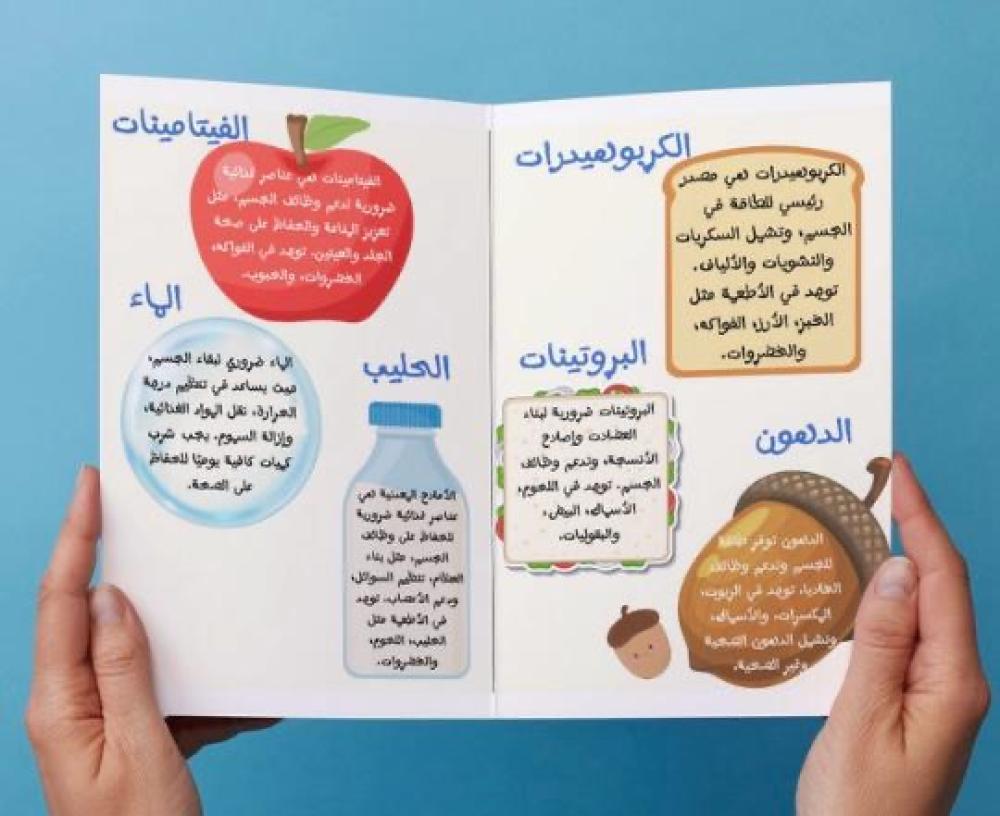 الكربوهيدرات
الكربوهيدرات هي مصدر
رئيسي للطاقة في
الجسم، وتشمل السكريات
والنشويات والألياف.
توجد في الأطعمة مثل
الخبز، الأرز، الفواكه،
والخضروات.
البروتينات
البروتينات ضرورية لبناء
العضلات وإصلاح
الأنسجة، وتدعم وظائف
الجسم. توجد في اللحوم،
الأسماك، البيض،
والبقوليات.
الدهون
الدهون توفر طاقة
للجسم وتدعم وظائف
الخلايا. توجد في الزيوت،
المكسرات، والأسماك،
وتشمل الدهون الصحية
وغير الصحية.
الفيتامينات
الفيتامينات هي عناصر غذائية
ضرورية لدعم وظائف الجسم، مثل
تعزيز المناعة والحفاظ على صحة
الجلد والعينين. توجد في الفواكه،
الخضروات، والحبوب.
الماء
الماء ضروري لبقاء الجسم،
حيث يساعد في تنظيم درجة
الحرارة، نقل المواد الغذائية،
وإزالة السموم. يجب شرب
كميات كافية يوميًا للحفاظ
على الصحة.
الحليب
الأملاح المعدنية هي
عناصر غذائية ضرورية
للحفاظ على وظائف
الجسم، مثل بناء
العظام، تنظيم السوائل،
ودعم الأعصاب. توجد
في الأطعمة مثل
الحليب، اللحوم،
والخضروات.